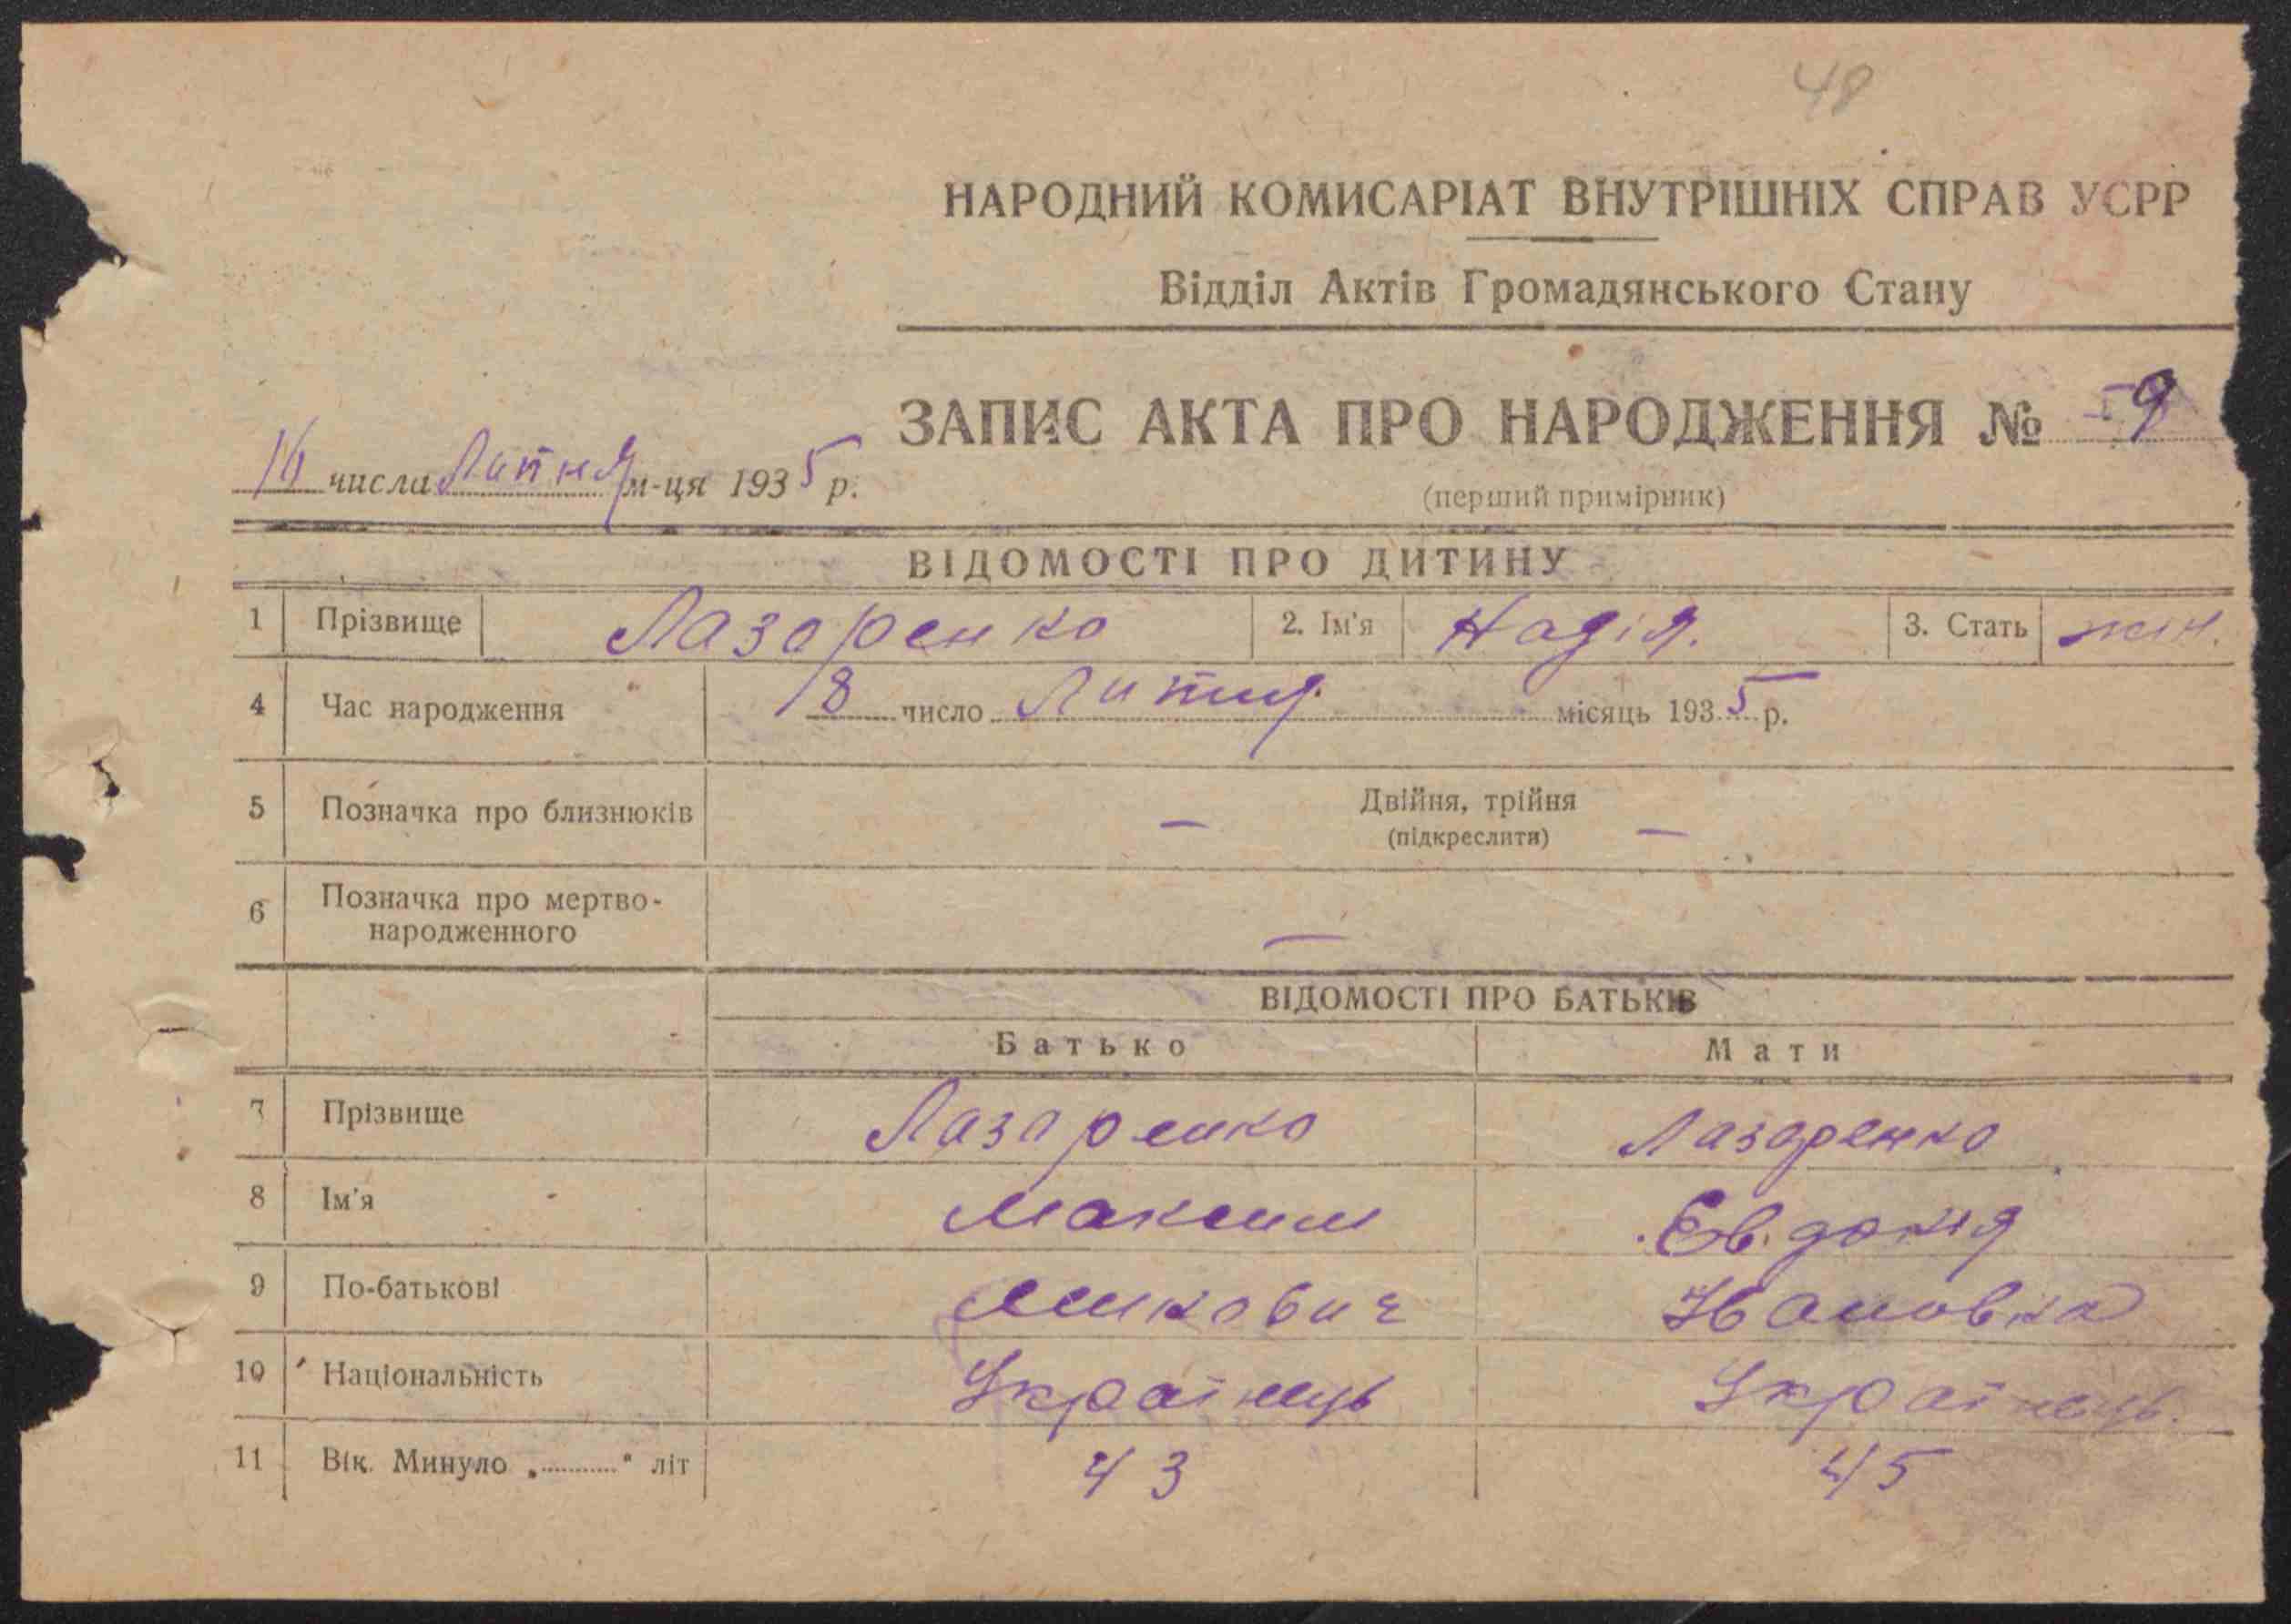 48
НАРОДНИЙ КОМИСАРІАТ ВНУТРІШНІХ СПРАВ УСРР
Відділ Актів Громадянського Стану
ЗАПИС АКТА ПРО НАРОДЖЕННЯ № 9
16 числа Липня м-ця 1935 р.
(перший примірник)
ВІДОМОСТІ ПРО ДИТИНУ
1 Прізвище Лазаренко 2. Ім'я Надія. 3. Стать жін.
4 Час народження 8 число Липня місяць 1935 р.
5 Позначка про близнюків — Двійня, трійня —
(підкреслити)
6 Позначка про мертво-
народженного —
ВІДОМОСТІ ПРО БАТЬКІВ
Батько Мати
7 Прізвище Лазаренко Лазаренко
8 Ім'я Максим Євдокія
9 По-батькові Івановна
10 Національність Українець Українець.
11 Вік. Минуло „ “ літ 43 45